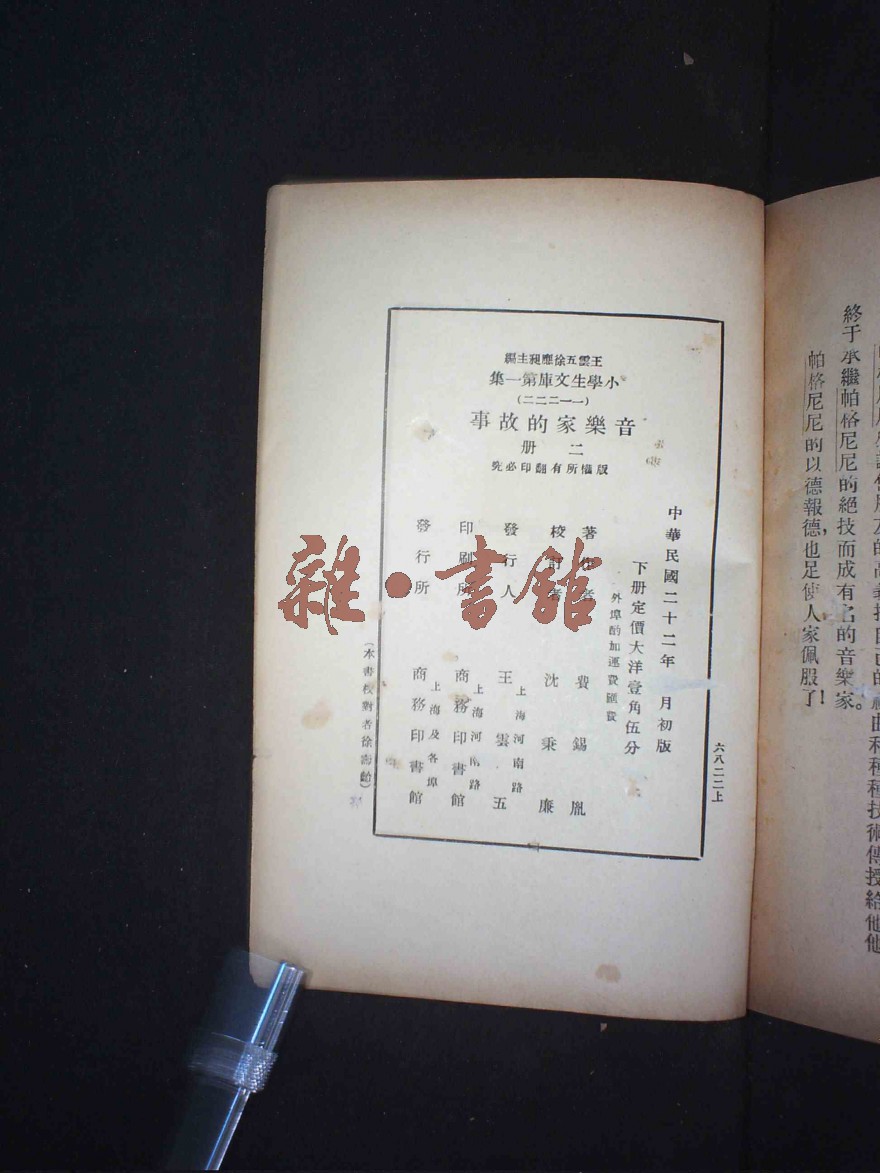 曲和種種技術傳授給他他
終于承繼帕格尼尼的絕技而成有名的音樂家。
帕格尼尼的以德報德，也足使人家佩服了！
王雲五徐應昶主編
小學生文庫第一集
(一一二二二)
音樂家的故事
二册
版權所有翻印必究
六八二二上
中華民國二十二年　月初版
下册定價大洋壹角伍分
外埠酌加運費匯費
著作者　費錫胤
校訂者　沈秉廉
發行人　上海河南路
王雲五
印刷所　上海河南路
商務印書館
發行所　上海及各埠
商務印書館
(本書校對者徐壽齡)
雜·書館